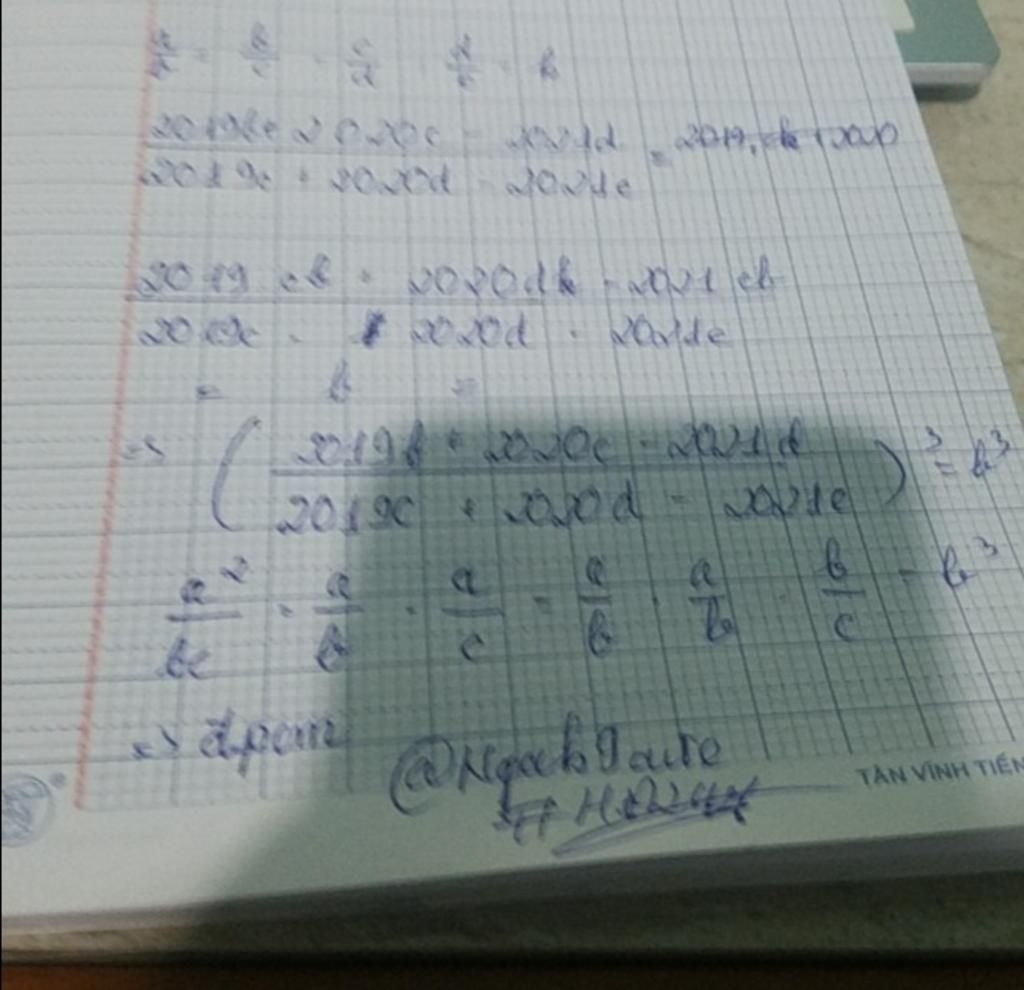 a/b = b/c = c/d = d/e = k
(2019b + 2020c - 2021d)/(2019c + 2020d - 2021e) = 2019.ck + 2020
(2019 ck + 2020dk - 2021 ek)/(2019c + 2020d - 2021e)
= k =
=> ((2019b + 2020c - 2021d)/(2019c + 2020d - 2021e))^3 = k^3
a^2/bc = a/b . a/c = a/b . a/b . b/c = k^3
=> đpcm
TÂN VĨNH TIẾN